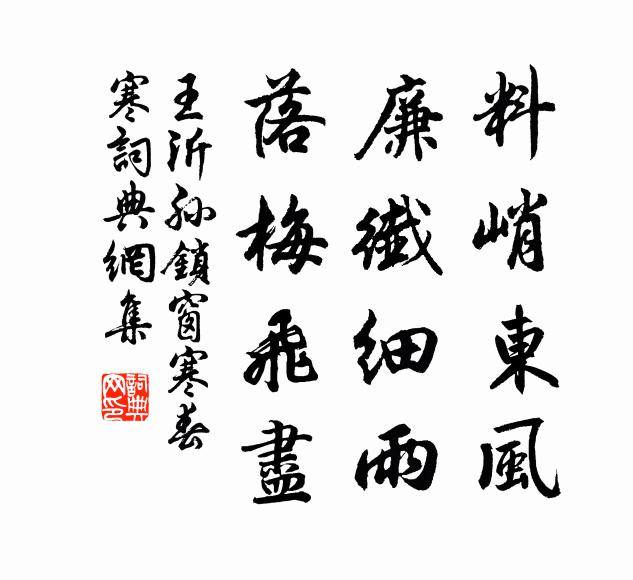 料峭東風
廉纖細雨
落梅飛盡
王沂孫鎖窗寒春
寒詞典網集
詞典网印